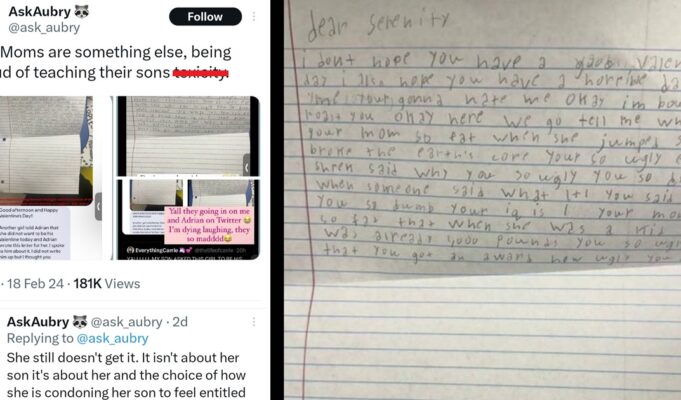 AskAubry 🦝
@ask_aubry
Follow
Moms are something else, being
of teaching their sons toxicity
Good afternoon and Happy
Valentine's Day!
Another girl told Adrian that
she did not want to be his
Valentine today and Adrian
wrote this letter for me. I spoke
to him about it, I told not write
but I thought you
Yall they going in on me
and Adrian on Twitter 😂
I'm dying laughing, they
so madddd😂
EverythingCarrie
MY SON ASKED THIS GIRL TO BE HIS
· 18 Feb 24 · 181K Views
AskAubry 🦝 @ask_aubry · 2d
Replying to @ask_aubry
She still doesn't get it. It isn't about her
son it's about her and the choice of how
she is condoning her son to feel entitled
dear serenity
i dont hope you have a good valen
day i also hope you have a horrible da
your gonna hate me okay im bou
roast you okay here we go tell me wh
your mom so fat when she jumped s
broke the earth's core your so ugly e
shrek said why you so ugly you so
when someone said what 1+1 you said
you so dumb your iq is 1 your mo
so fat that when she was a kid
was already 1,000 pounds you so ugl
that you got an award how ugly you